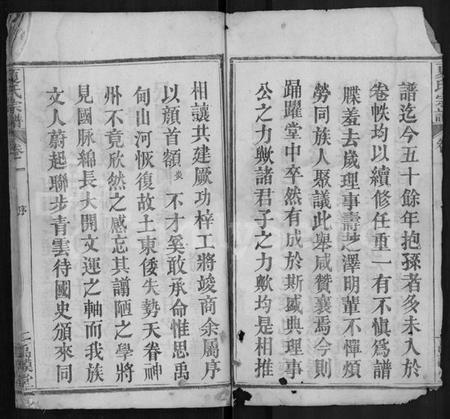 譜迄今五十餘年抱孫者多未入於
卷帙均以續修任重一有不慎為譜
牒羞去歲理事壽芝澤明輩不憚煩
勞同族人聚議此舉咸贊襄焉今則
踊躍堂中卒然有成於斯盛典理事
公之力歟諸君子之力歟均是相推
相讓共建厥功梓工將竣商余屬序
以顏首額炎不才奚敢承命惟思禹
甸山河恢復故土東倭失勢天眷神
州不竟欣然之感忘其譾陋之學將
見國脉綿長大開文運之軸而我族
文人蔚起聯步青雲待國史頒來同
夏氏宗譜
卷一
序